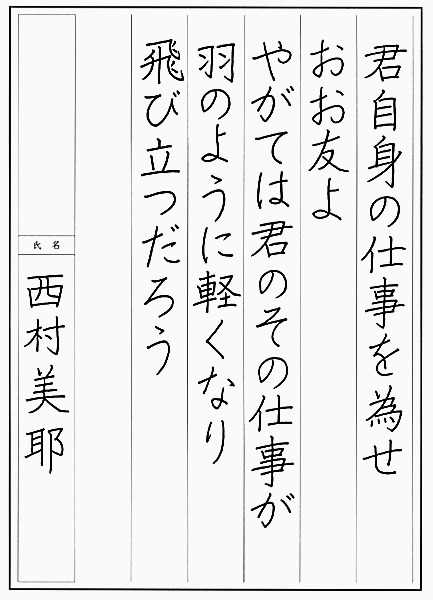 君自身の仕事を為せ
おお友よ
やがては君のその仕事が
羽のように軽くなり
飛び立つだろう
氏名
西村美耶